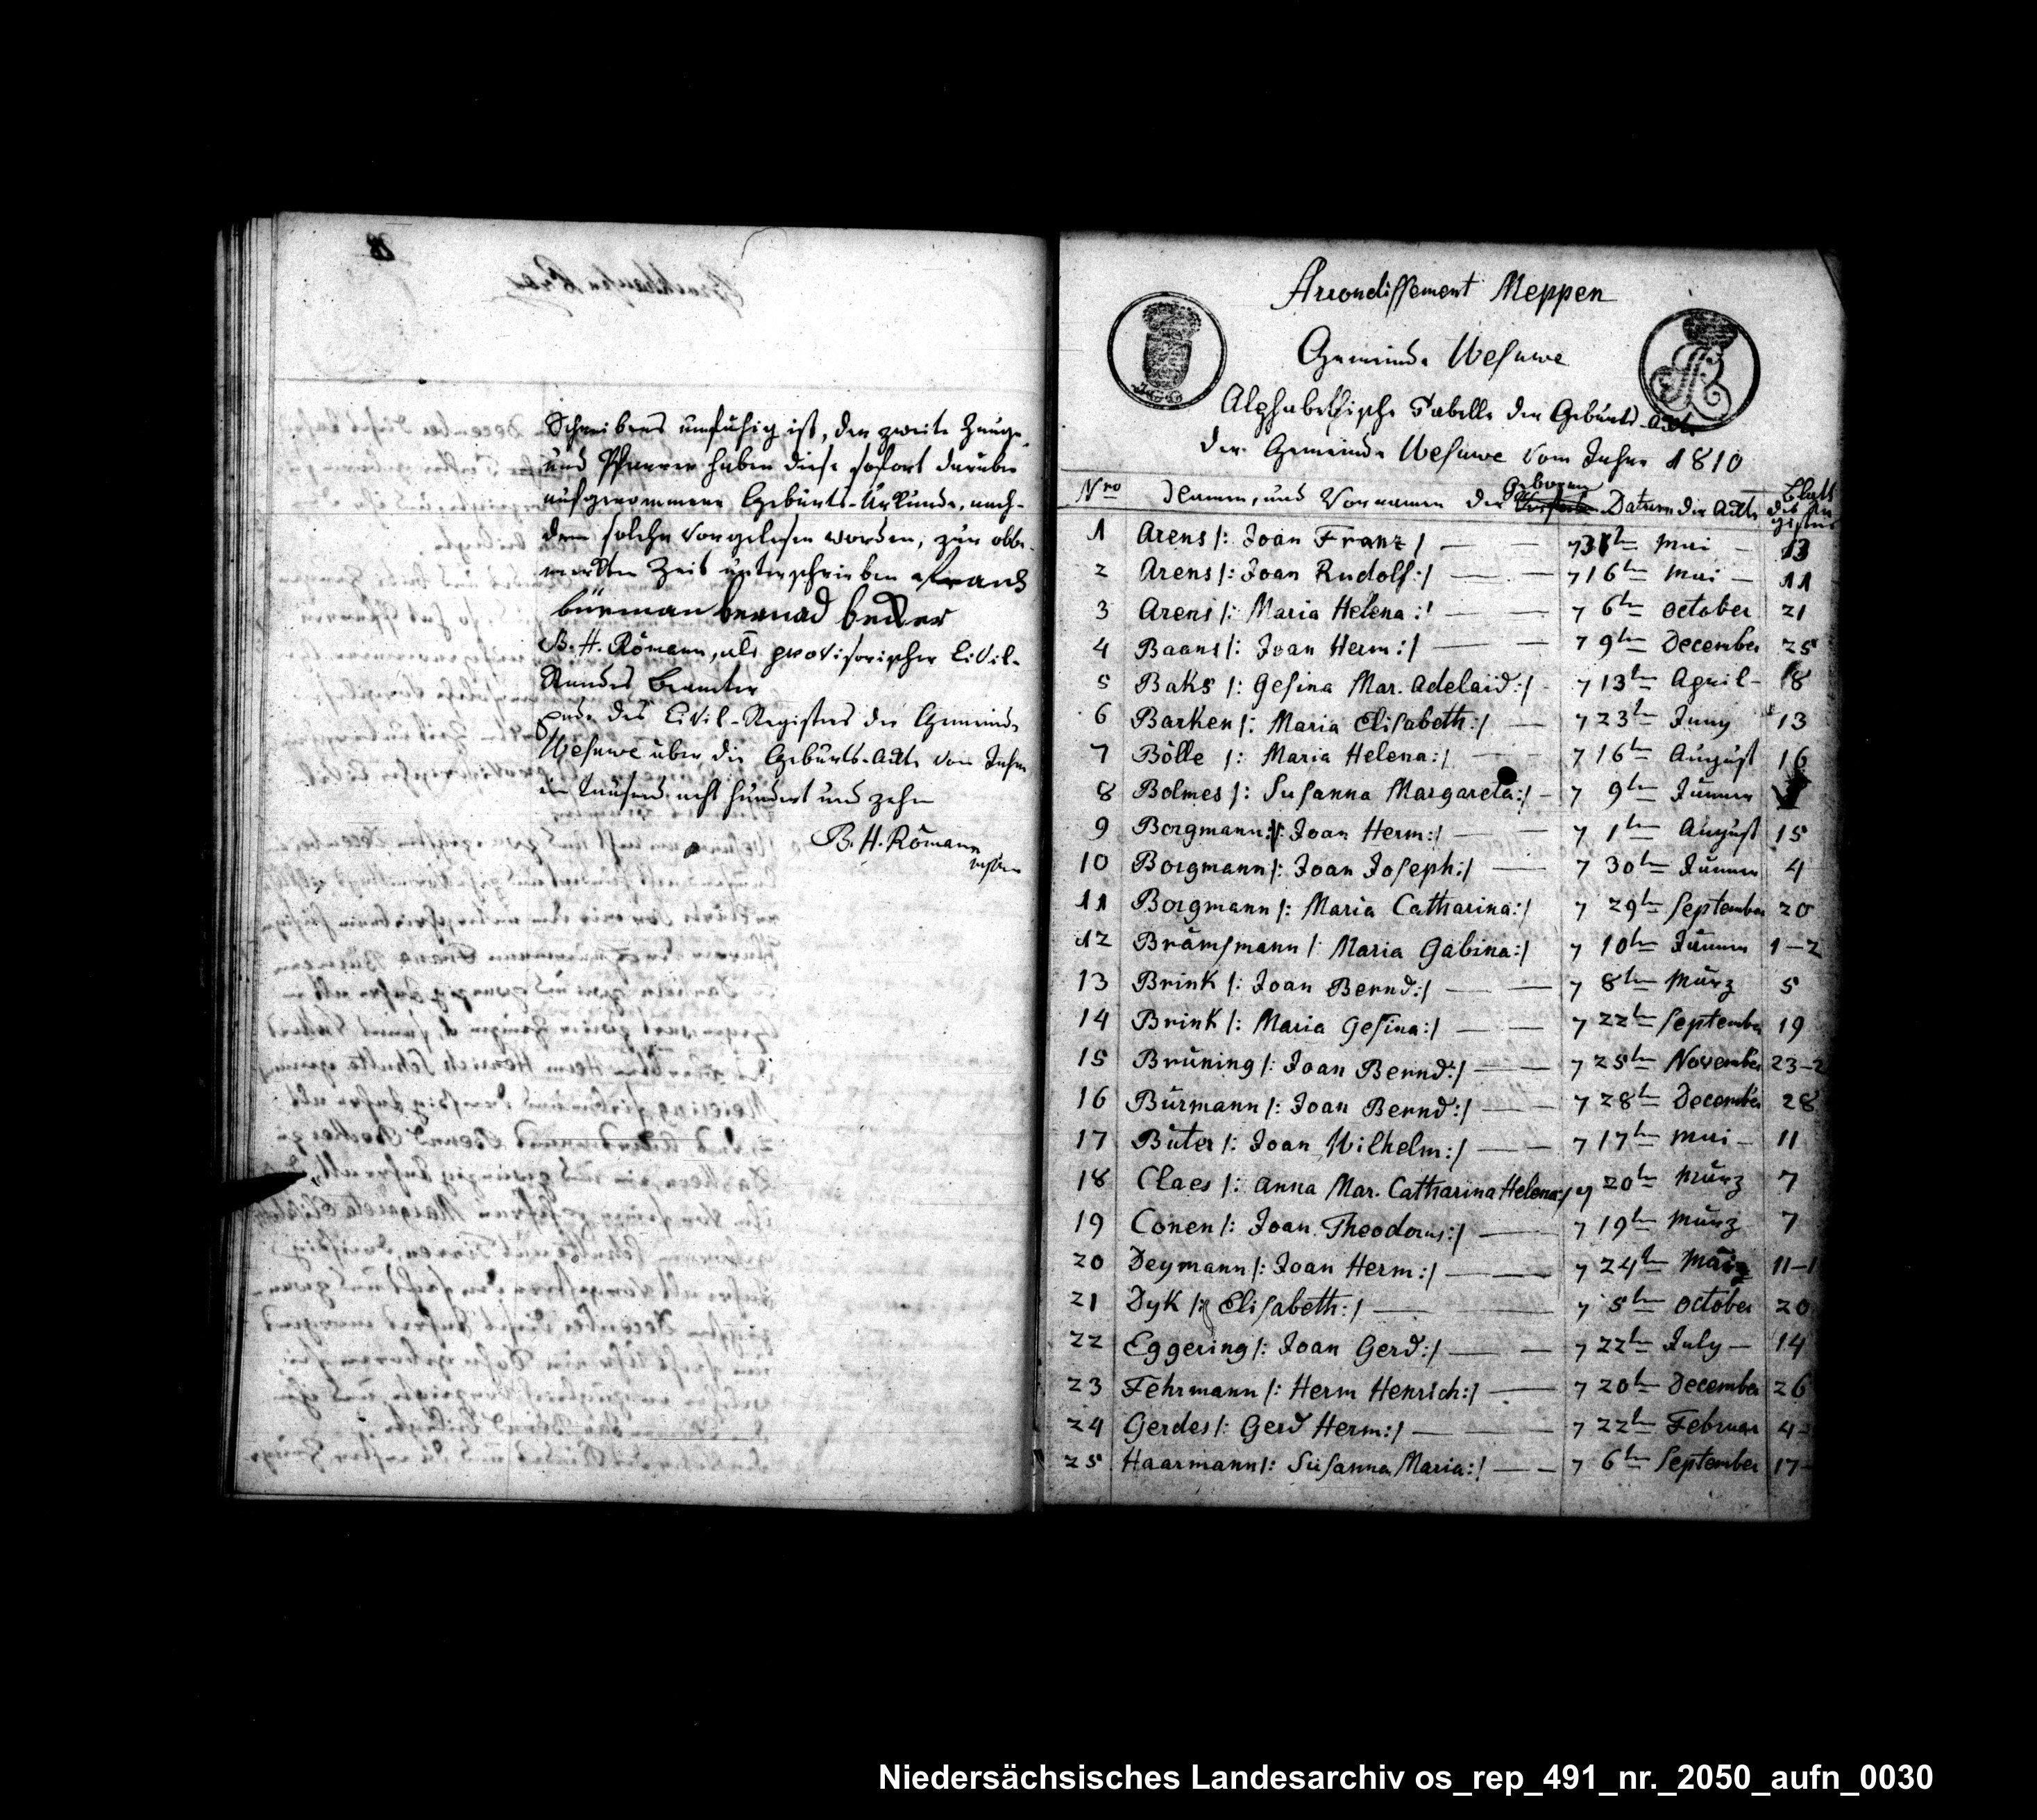 Schreibens unfähig ist, der zweite Zeuge
und Pfarrer haben diese sofort darüber
aufgenommene Geburts-Urkunde, nach-
dem solche vorgelesen worden, zur obbe-
merkten Zeit unterschrieben Frans
bürman bernad becker
B. H. Römann, als provisorischer Civil-
Standes Beamter
Ende des Civil-Registers der Gemeinde
Wesuwe über die Geburts-Acte vom Jahre
ein tausend acht hundert und zehn
B. H. Römann
Arrondissement Meppen
Gemeinde Wesuwe
Alphabethische Tabelle der Geburts-Acte
der Gemeinde Wesuwe vom Jahre 1810
Nro Namen, und Vornamen der Geboren Datum der Acte Blatt des Registers
1 Arens /: Joan Franz / 31te Mai 13
2 Arens /: Joan Rudolf :/ 16te Mai 11
3 Arens /: Maria Helena :/ 6te October 21
4 Baans /: Joan Herm :/ 9te December 25
5 Baks /: Gesina Mar. Adelaid :/ 13te April 8
6 Barken /: Maria Elisabeth :/ 23te Juny 13
7 Bölle /: Maria Helena :/ 16te August 16
8 Bolmes /: Susanna Margareta :/ 9te Jänner
9 Borgmann /: Joan Herm :/ 1te August 15
10 Borgmann /: Joan Joseph :/ 30te Jänner 4
11 Borgmann /: Maria Catharina :/ 29te September 20
12 Brämsmann /: Maria Gabina :/ 10te Jänner 1-2
13 Brink /: Joan Bernd :/ 8te März 5
14 Brink /: Maria Gesina :/ 22te September 19
15 Brüning /: Joan Bernd :/ 25te November 23-2
16 Bürmann /: Joan Bernd :/ 28te December 28
17 Büter /: Joan Wilhelm :/ 17te Mai 11
18 Claes /: Anna Mar. Catharina Helena :/ 20te März 7
19 Conen /: Joan Theodorus :/ 19te März 7
20 Deymann /: Joan Herm :/ 24te Mai 11-1
21 Dyk /: Elisabeth :/ 5te October 20
22 Eggering /: Joan Gerd :/ 22te July 14
23 Fehrmann /: Herm Henrich :/ 20te December 26
24 Gerdes /: Gerd Herm :/ 22te Februar 4-
25 Haarmann /: Susanna Maria :/ 6te September 17-
Niedersächsisches Landesarchiv os_rep_491_nr._2050_aufn_0030